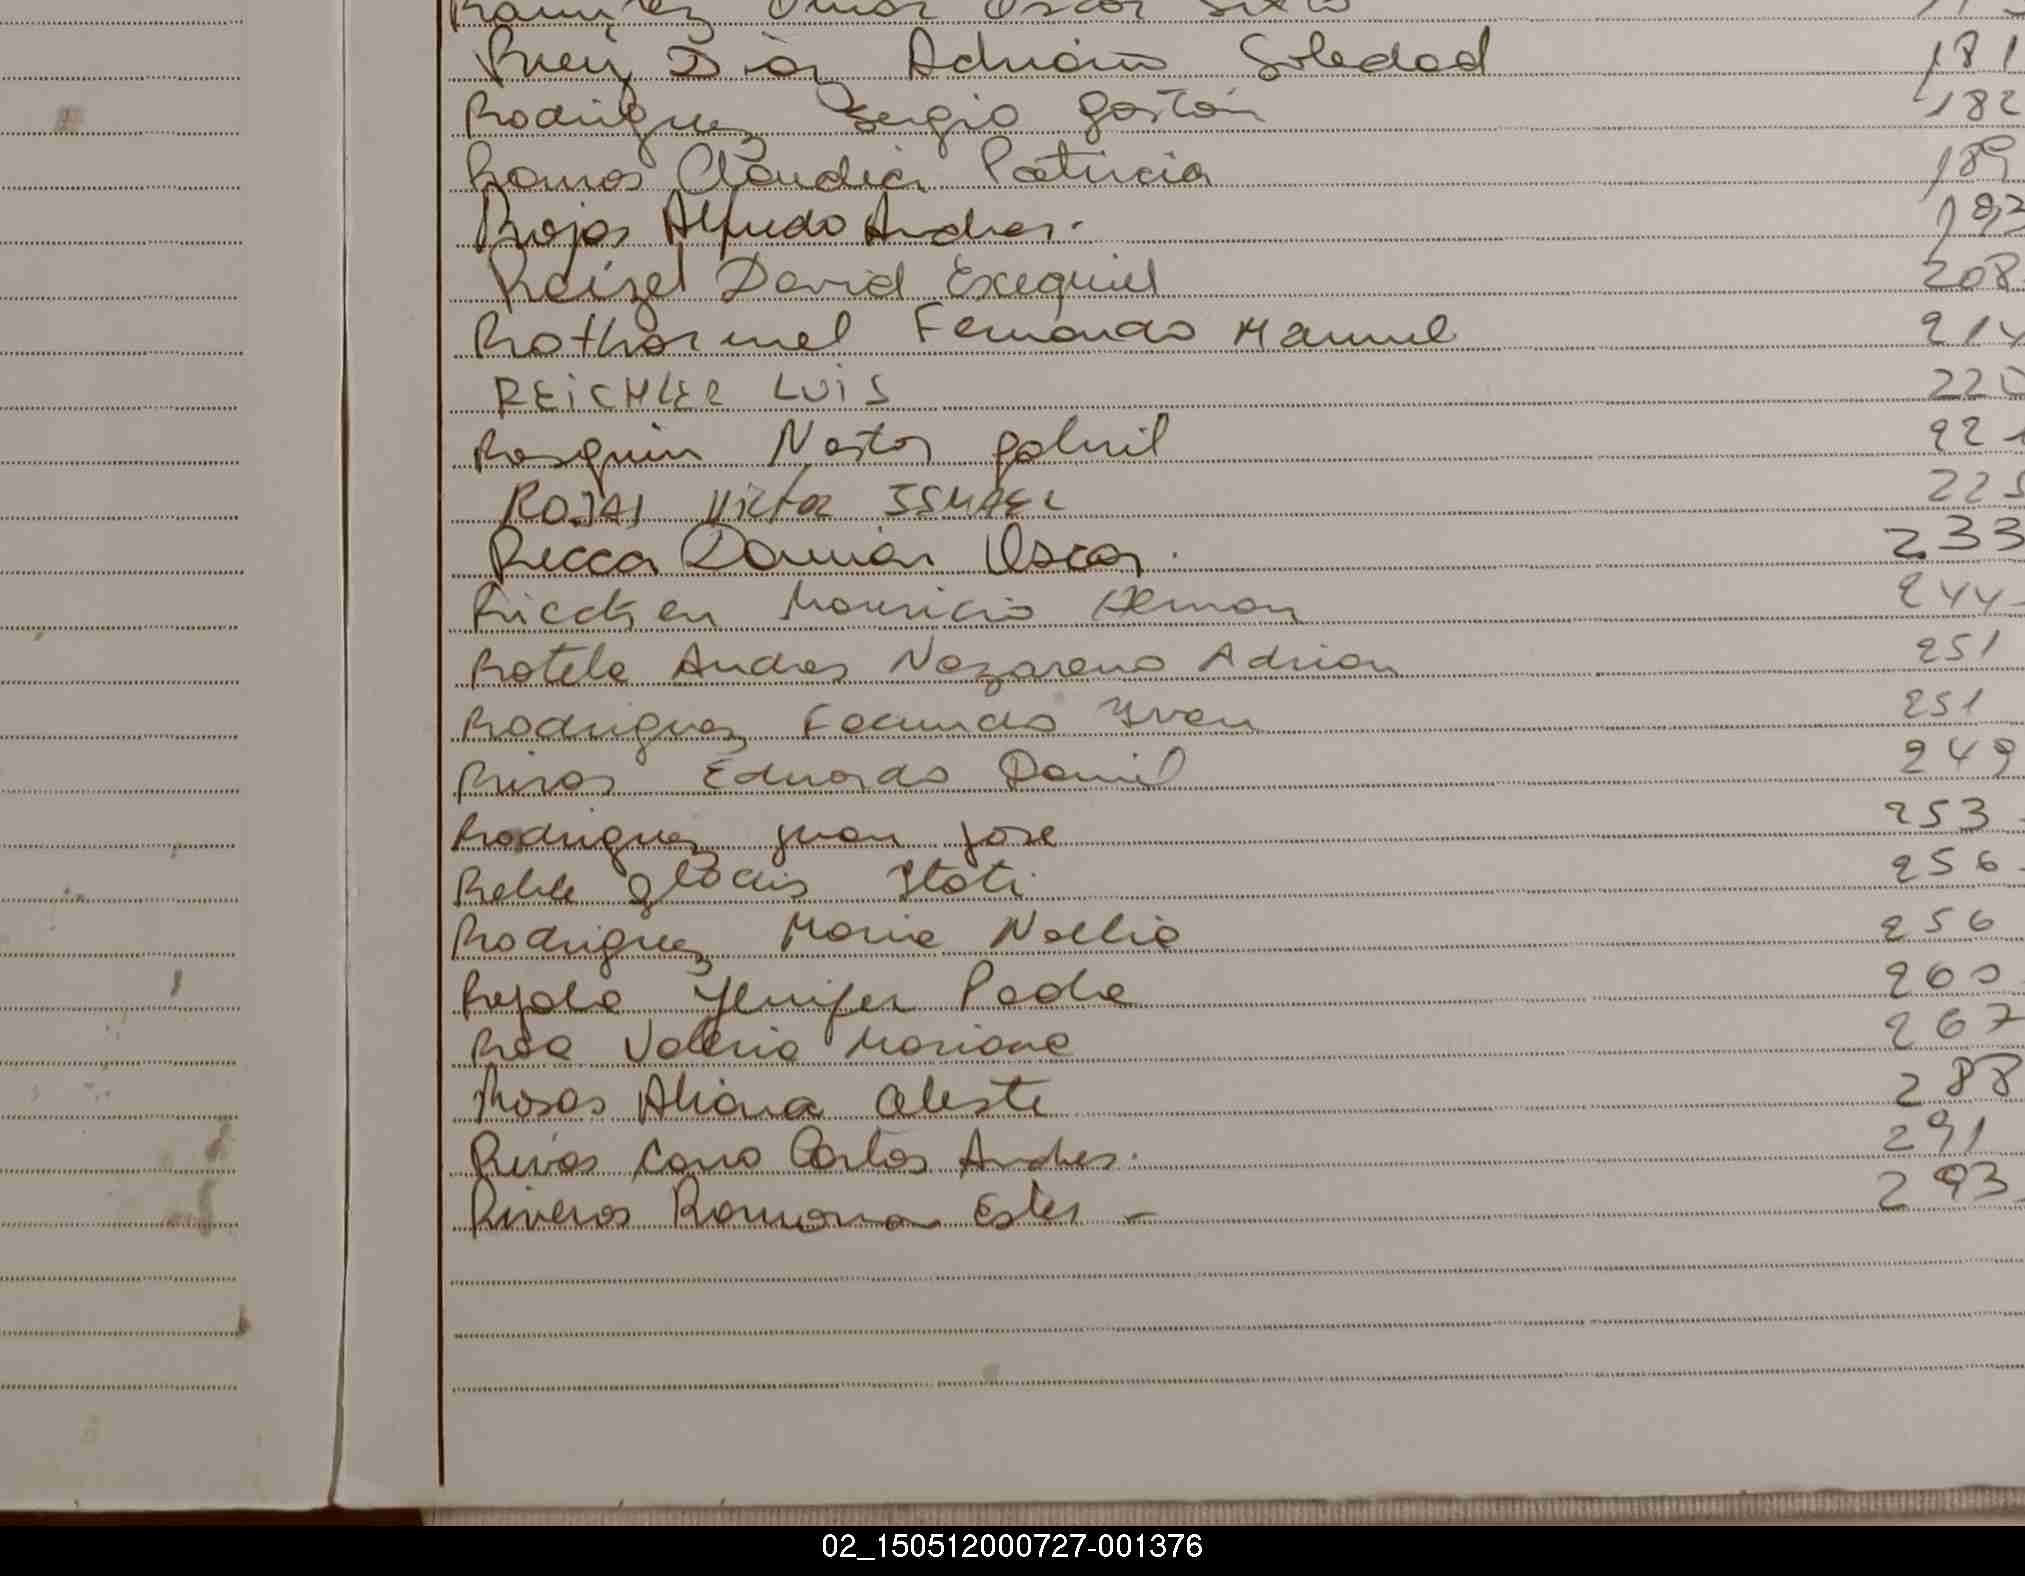 Ramirez Omar Oscar Sixto
Ruiz Diaz Adriana Soledad 181
Rodriguez Sergio Gastón 182
Ramos Claudia Patricia 189
Rojas Alfredo Andres. 193
Raizel David Exequiel 208
Rotharmel Fernando Manuel 214
REICHLER LUIS 220
Rasquin Nestor Gabriel 221
ROJAS Victor ISMAEL 225
Recca Damian Oscar. 233
Mauricio Hernan 244
Rotela Andres Nazareno Adrian 251
Rodriguez Facundo Yvan 251
Rivas Eduardo Daniel 249
Rodriguez Juan Jose 253
Gladis Itati 256
Rodriguez Maria Noelia 256
Rejala Jennifer Paola 260
Roa Valeria Mariana 267
Rosas Aliana Celeste 288
Rivas Cano Carlos Andres. 291
Riveros Ramona Ester - 293
02_150512000727-001376